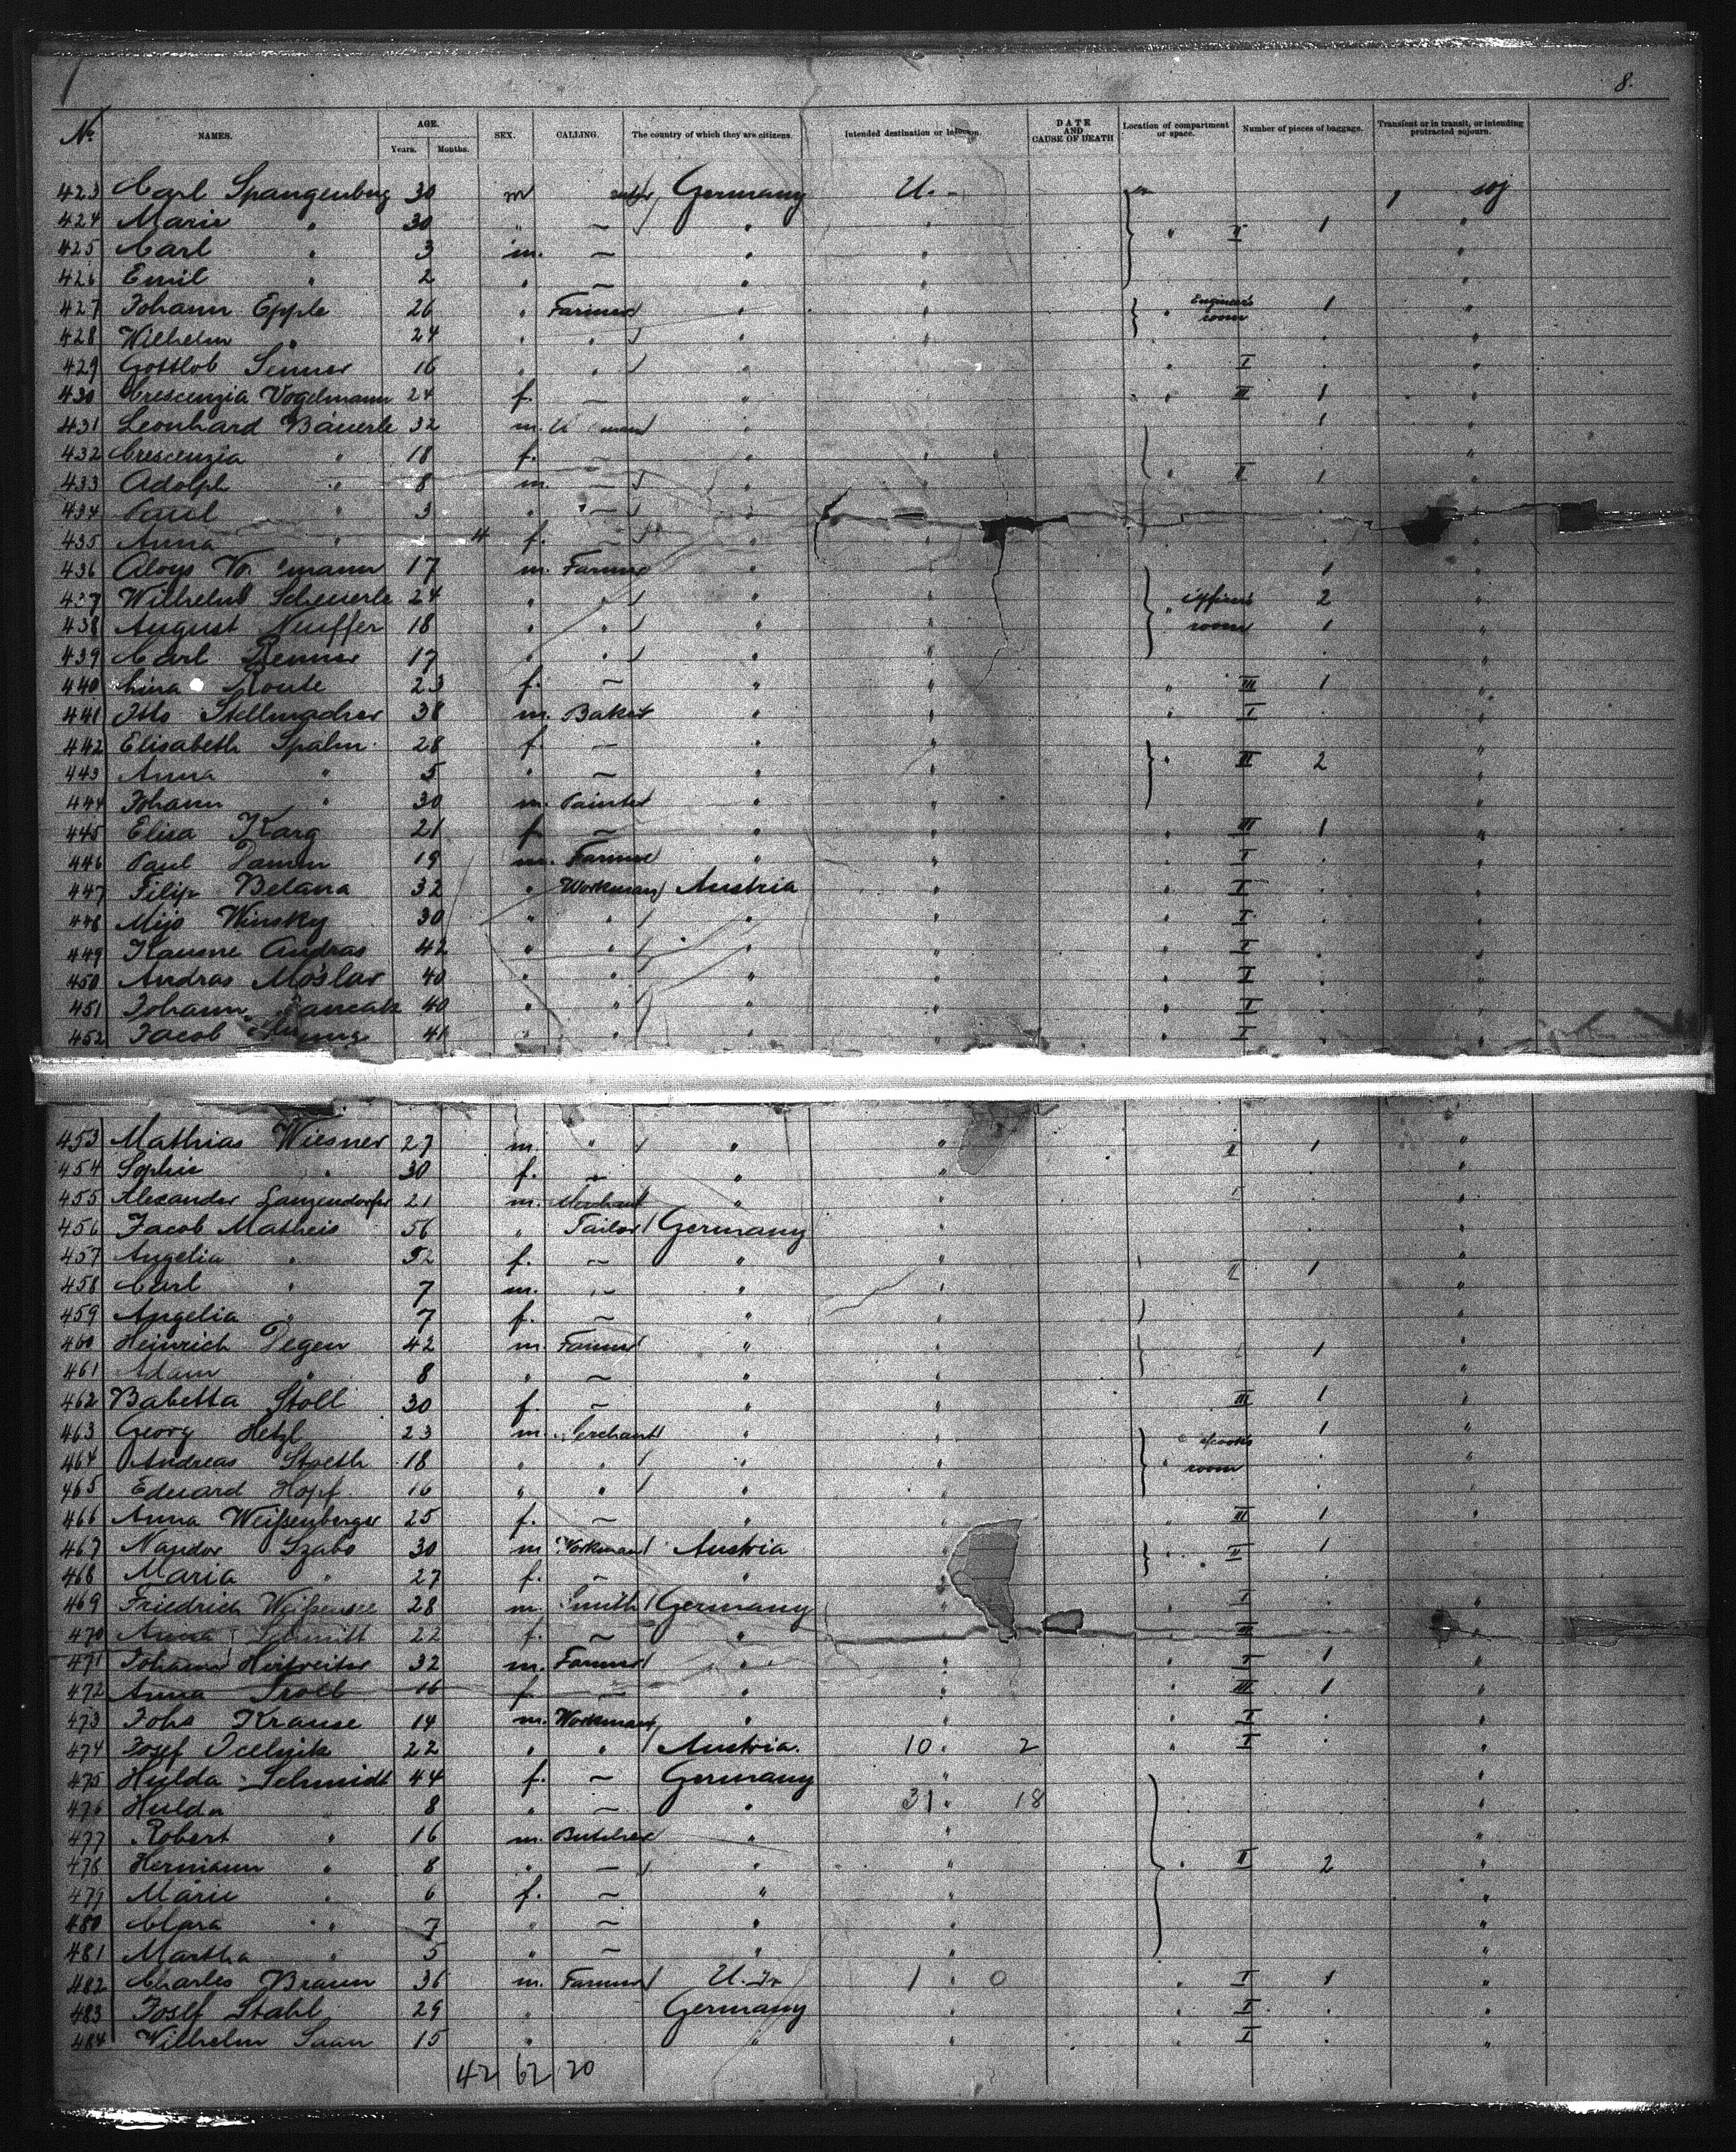 8.
No. NAMES. AGE. Years. Months. SEX. CALLING. The country of which they are citizens. Intended destination or location. DATE AND CAUSE OF DEATH Location of compartment or space. Number of pieces of baggage. Transient or in transit, or intending protracted sojourn.
423 Carl Spangenberg 30 m Germany U. soj
424 Marie " 30 " — " " " II 1 "
425 Carl " 3 m. — " " "
426 Emil " 2 " — " " "
427 Johann Epple 26 " Farmer " " " Engineer's room 1 "
428 Wilhelm " 24 " " " " "
429 Gottlob 16 " " " " " I "
430 Crescenzia Vogelmann 24 f. — " " " III 1 "
431 Leonhard Bäuerle 32 m. " 1
432 Crescenzia " 18 f. — " " "
433 Adolph " 8 m. — " " " II 1 "
434 Paul " 3 " — "
435 Anna " f. — " " "
436 Aloys 17 m. Farmer " 1 "
437 Wilhelm Scheuerle 24 " " " " " Officers 2 "
438 August Nuffer 18 " " " " room 1 "
439 Carl Renner 17 " " " " "
440 Lina 23 f. — " " " III 1 "
441 Otto Stellmacher 38 m. Baker " " " I "
442 Elisabeth Spahn 28 f. — " " "
443 Anna " 5 " — " " " III 2 "
444 Johann " 30 m. Painter " " "
445 Elisa Karg 21 f. — " " " III 1 "
446 Paul Damm 19 m. Farmer " " " I "
447 Filip Belana 32 " Workman Austria " " I "
448 Mijo Winsky 30 " " " " " I "
449 Andras 42 " " " " " I "
450 Andras Moslar 40 " " " " " I "
451 Johann 40 " " " " " I "
452 Jacob 41 " " " " I "
453 Mathias Wiesner 27 m. " " " II 1 "
454 Sophie " 30 f. — " " "
455 Alexander Lanzendorfer 21 m. Merchant " "
456 Jacob Matheis 56 " Tailor Germany " "
457 Angelia " 52 f. — " " II 1 "
458 Carl " 7 m. — " " "
459 Angelia " 7 f. — " " "
460 Heinrich Degen 42 m. Farmer " " 1 "
461 Adam " 8 " — " " "
462 Babetta Stoll 30 f. — " " III 1 "
463 Georg Hetzl 23 m. Merchant " " cooks 1 "
464 Andreas Stoeth 18 " " " " " room "
465 Eduard Hopf 16 " " " " "
466 Anna Weißenberger 25 f. — " " III 1 "
467 Nandor Szabo 30 m Workman Austria " II 1
468 Maria " 27 f. — " "
469 Friedrich Weißensee 28 m. Smith Germany " " I "
470 Anna Schmitt 22 f. — " " III "
471 Johann 32 m. Farmer " " " I 1 "
472 Anna 16 f. — " " " III 1 "
473 Johs Krause 14 m. Workman " " " I "
474 Josef 22 " " Austria. 10 2 " I "
475 Hulda Schmidt 44 f. — Germany " "
476 Hulda " 8 " — " 31 18 "
477 Robert " 16 m. Butcher " " "
478 Hermann " 8 " — " " " II 2 "
479 Marie " 6 f. — " " "
480 Clara " 7 " — " " "
481 Martha " 5 " — " " "
482 Charles Braun 36 m. Farmer 1 0 " I 1 "
483 Josef Stahl 29 " Germany " " I "
484 Wilhelm 15 " " " " I "
42 62 20